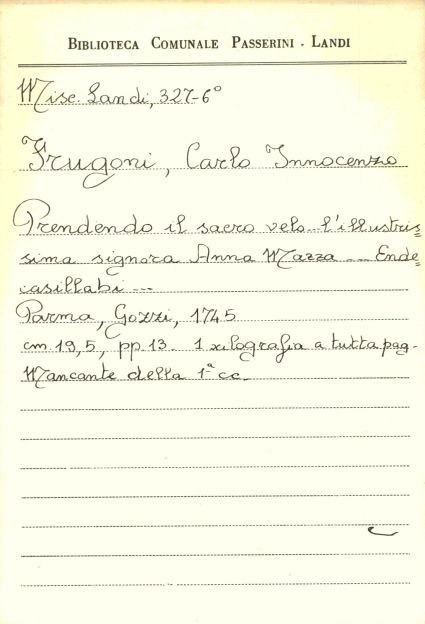 BIBLIOTECA COMUNALE PASSERINI - LANDI
Misc. Landi, 327-6°
Frugoni, Carlo Innocenzo
Prendendo il sacro velo...l'illustris=
sima signora Anna Mazza ... Ende=
casillabi ...
Parma, Gozzi, 1745
cm. 19,5, pp. 13. 1 xilografia a tutta pag.
Mancante della 1ª cc.